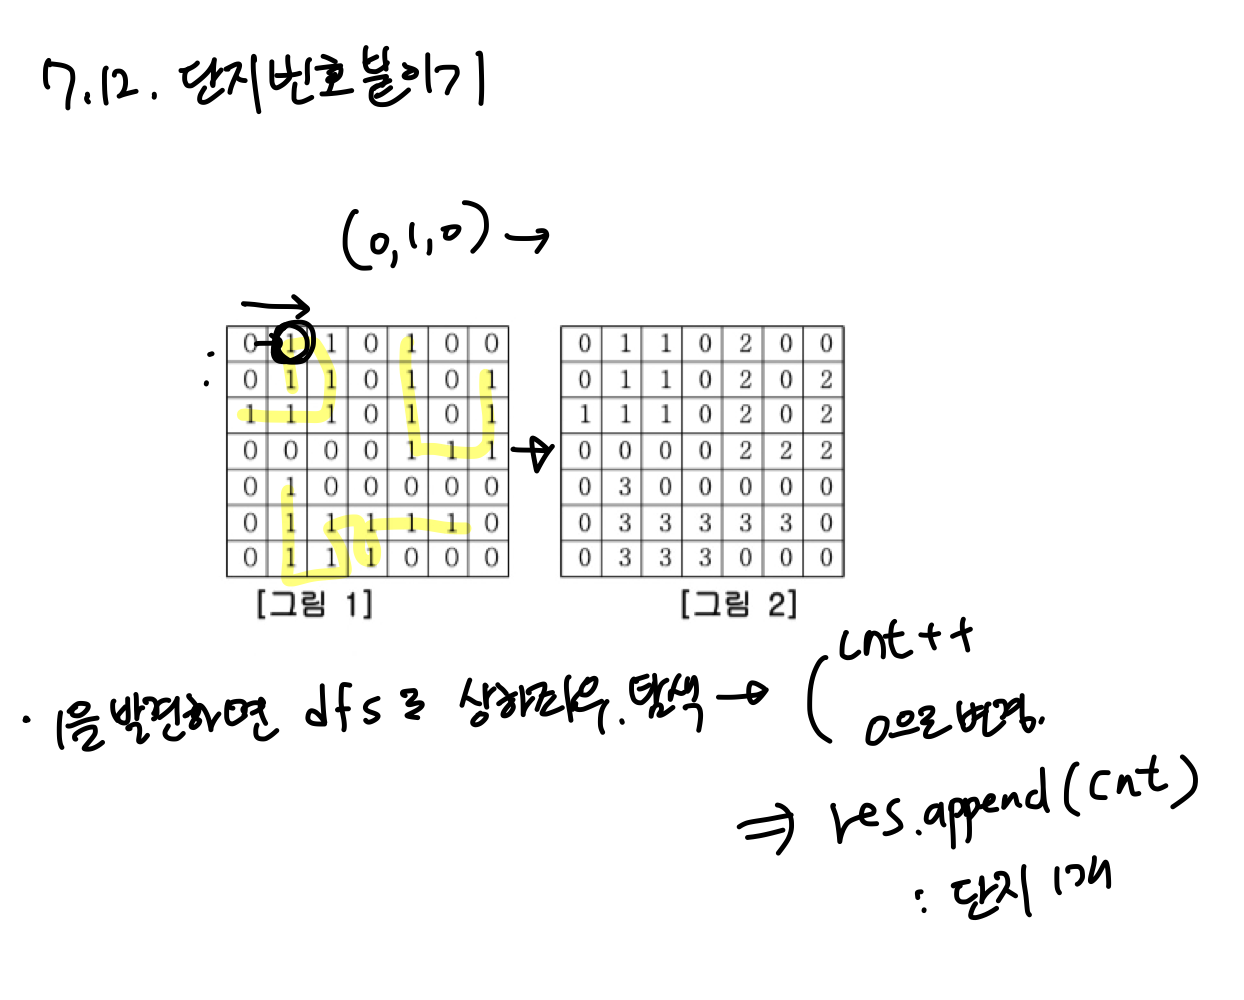 7.12. 단지번호붙이기
(0,1,0) →
0 1 1 0 1 0 0
0 1 1 0 1 0 1
1 1 1 0 1 0 1
0 0 0 0 1 1 1
0 1 0 0 0 0 0
0 1 1 1 1 1 0
0 1 1 1 0 0 0
[그림 1]
0 1 1 0 2 0 0
0 1 1 0 2 0 2
1 1 1 0 2 0 2
0 0 0 0 2 2 2
0 3 0 0 0 0 0
0 3 3 3 3 3 0
0 3 3 3 0 0 0
[그림 2]
· 1을 발견하면 dfs로 상하좌우 탐색 → ( cnt++
0으로 변경.
⇒ res.append(cnt)
: 단지 1개